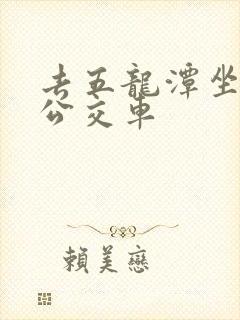 去五龍潭坐
公交車
賴美戀